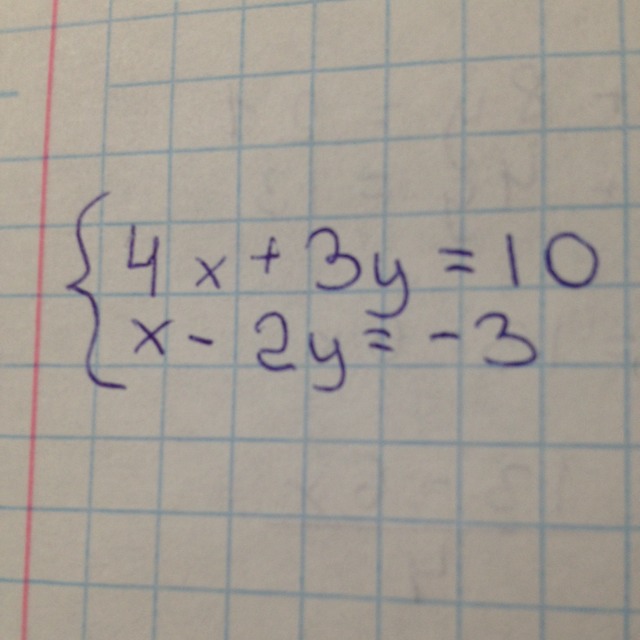 4x + 3y = 10
x - 2y = -3